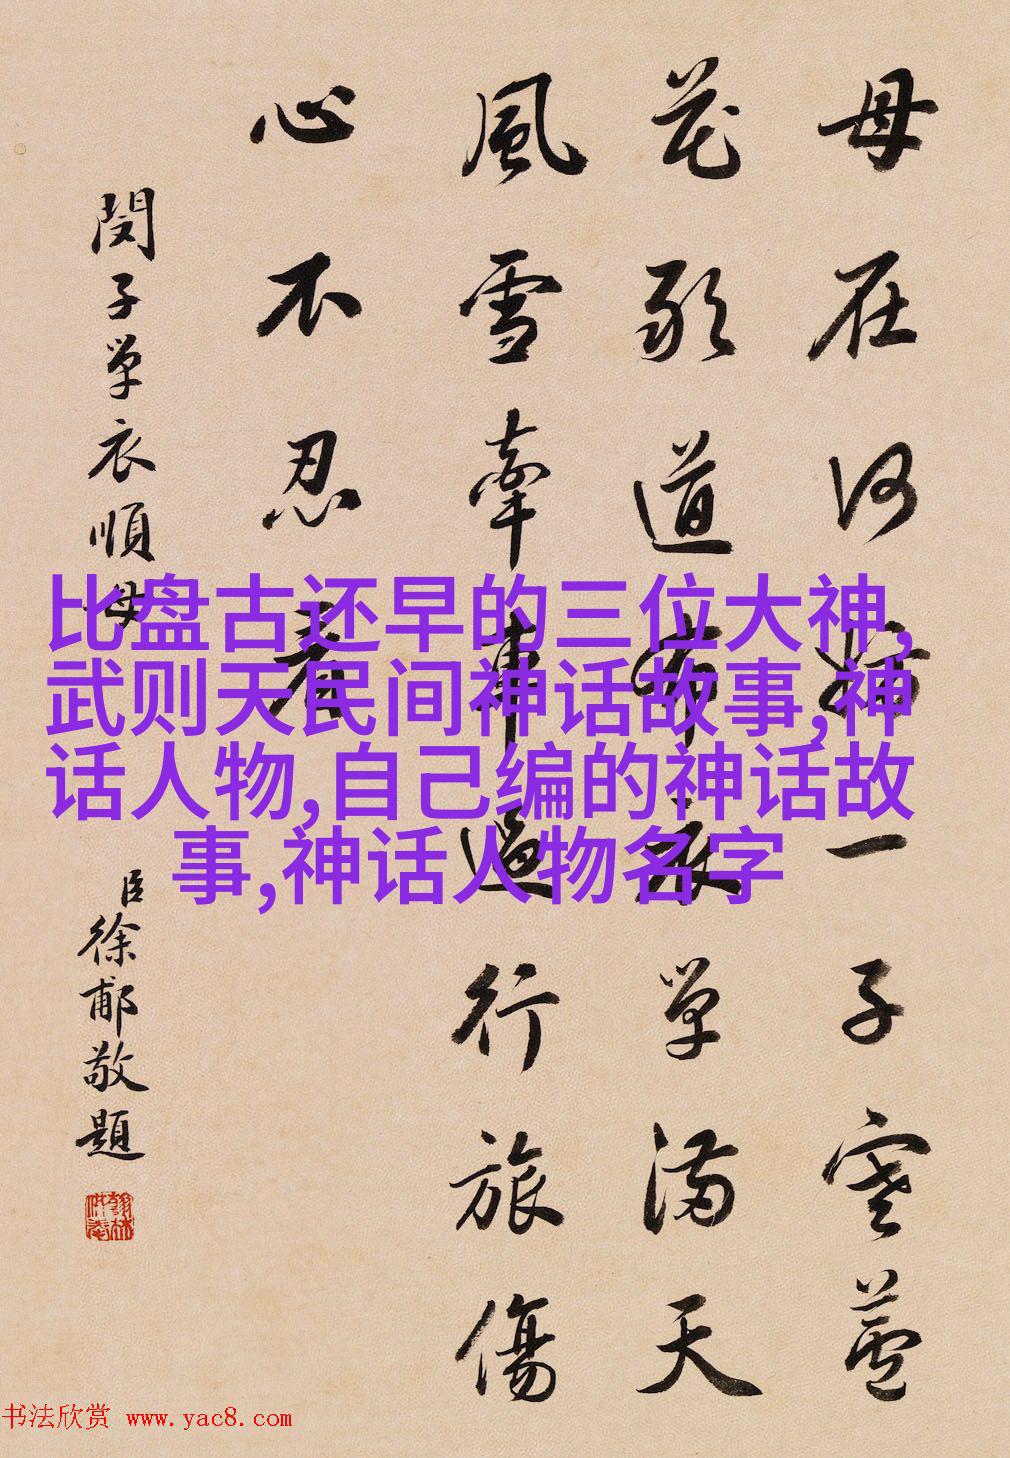 母在何妨一子寒蘆
花敢道布衣單滿天
風雪牽車過行旅傷
心不忍看
閔子單衣順母
臣徐郙敬題
比盘古还早的三位大神,
武则天民间神话故事,神
话人物,自己编的神话故
事,神话人物名字
书法欣赏 www.yac8.com